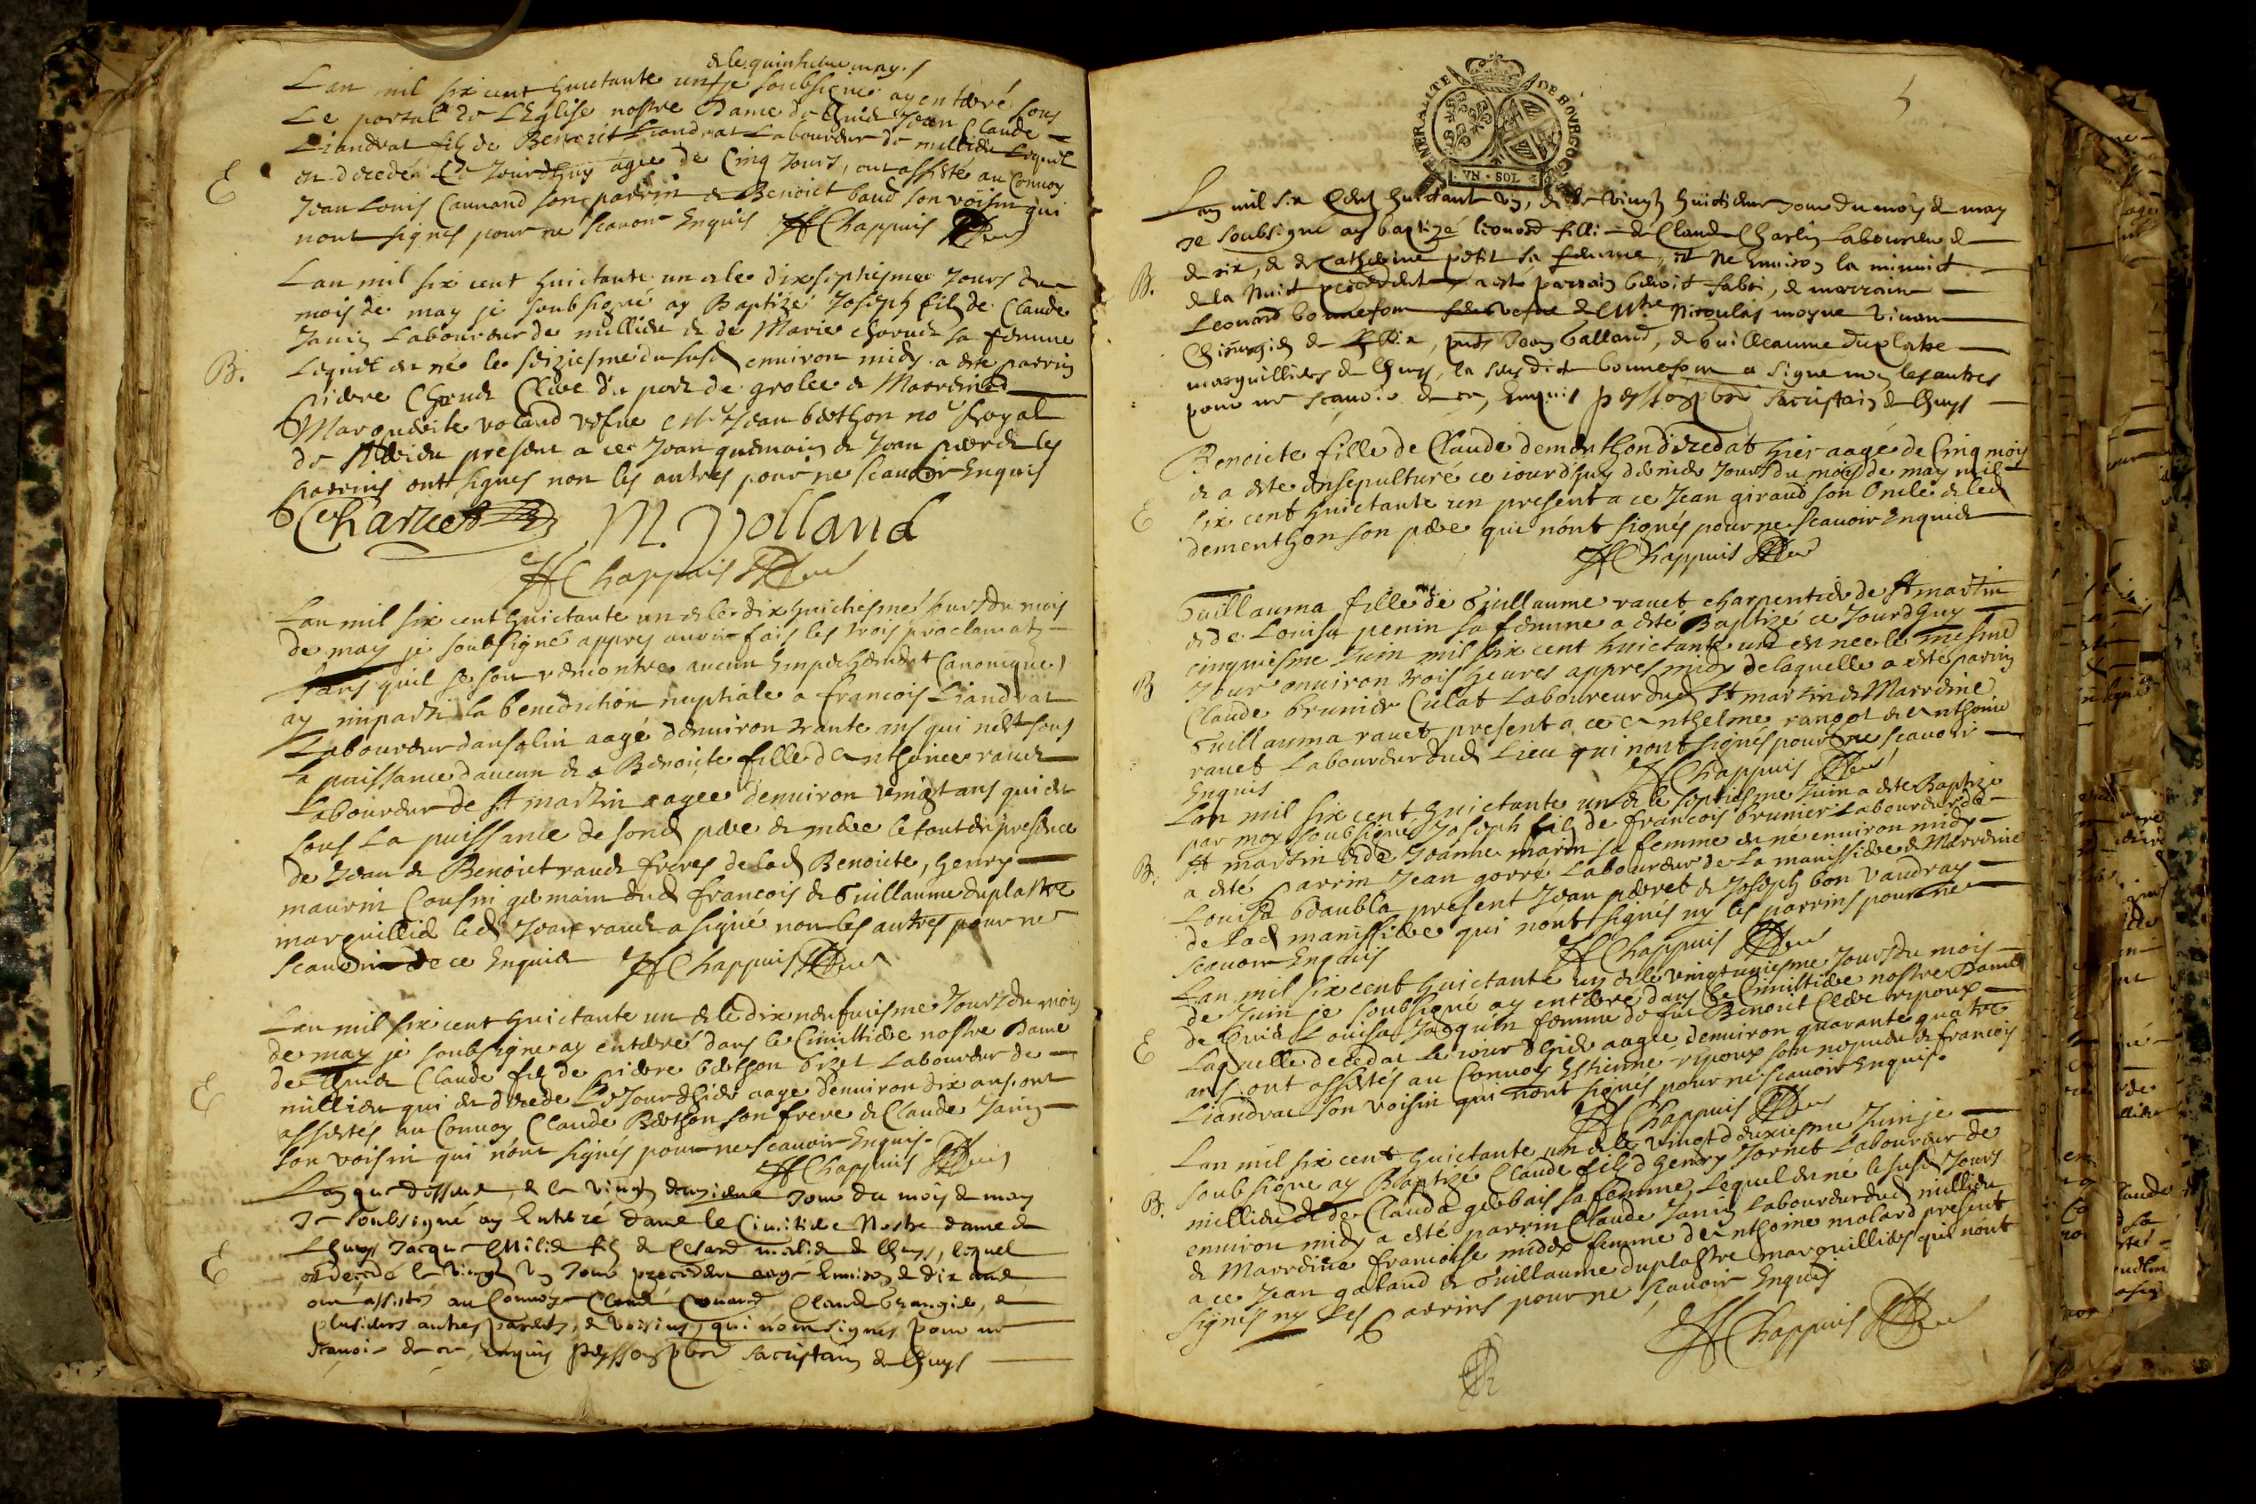 & le quinziesme may
Lan mil six cent huictante un je soubsigné ay enterré sous
Le portal de LEglise nostre Dame de Lhuis Jean Claude
Liandrat filz de Benoict Liandrat Laboureur de millieu Lequel
est decedé Ce Jourdhuy agee de Cinq Jours, ont assisté au Convoy
E
Jean Louis Cannard son parrin & Benoict baud son voisin qui
nont signes pour ne scavoir Enquis Chappuis
Lan mil six cent huictante un & le dixseptiesme Jours du
mois de may je soubsigné ay Baptizé Joseph filz de Claude
Janin Laboureur de millieu & de Marie charuet sa femme
Lequel est né le seiziesme du susd environ midy a esté parrin
B.
Pierre Charuet Clerc du port de grolee & Marrine
Marguerite voland vefve Me Jean berthon nore Royal
de present a ce Jean & Jean les
parrins ont signes non les autres pour ne scavoir Enquis
Charuet M. Volland
Chappuis
Lan mil six cent huictante un & le dix huictiesme Jours du mois
de may je soubsigné appres avoir fais les trois proclamat
sans quil se soit rencontre aucun Empechement Canonique
ay imparti la benediction nuptiale a francois Liandrat
Laboureur dansolin aagé denviron trante ans qui nest sous
La puissance daucun & a Benoicte fille dAnthoine ravet
Laboureur de St martin aagee denviron vingt ans qui est
sous La puissance de sond pere & mere le tout en presence
de Jean & Benoict ravet freres de lad Benoicte, henry
maurin Cousin germain dud francois & Guillaume duplastre
marguillier led Jean ravet a signé non les autres pour ne
scavoir de ce Enquis Chappuis
Lan mil six cent huictante un & le dix neufviesme Jours du mois
de may je soubsigne ay enterré dans le Cimittiere nostre Dame
de Lhuis Claude filz de pierre berthon Laboureur de
E
millieu qui est decedé Ce Jourdhui aagé denviron dix ans. ont
assistés au Convoy Claude Berthon son frere & Claude Janin
son voisin qui nont signés pour ne scavoir Enquis.
Chappuis
Lan que dessus, & le vingt deuxieme Jour du mois de may
Je soubsigné ay Enterré dans le Cimitiere Nostre dame de
Lhuys Jacque filz de Cesard de Lhuys, lequel
E
est decedé le vingt un Jour precedent aagé Environ de dix ans
ont assistés au Convoy Claude Claude & 
plusieurs autres parents, & voisins, qui nont signés pour ne
scavoir de ce, enquis sacristain de Lhuys
GENERALITE DE BOURGOGNE
VN · SOL
5
Lan mil six Cent huictante un, & le vingt huictieme Jour du mois de may
Je soubsigné ay baptizé leonard fill de Claude Charlin Laboureur de
de rix, & de Catherine petit sa femme, est né Environ la minuict
B.
de la Nuict precedente a esté parrain benoict fabri, & marraine
Leonard bonnefon vefve de Me Nicoulas moyne vivant
Chirurgien de Rix, pnts Jean galland, & Guilleaume Duplatre
marguilliers de Lhuys, la susdicte bonnefon a signe non les autres
pour ne scavoir de ce, Enquis sacristain de Lhuys
Benoicte fille de Claude dementhon decedat hier aagé de Cinq mois
& a esté ensepulturé ce iourdhuy dernier Jours du mois de may mil
E
six cent huictante un present a ce Jean giraud son Oncle & led
dementhon son pere qui nont signés pour ne scavoir Enquis
Chappuis
Guillauma fille de Guillaume ravet charpentier de St martin
& de Louise penin sa femme a esté Baptizé ce Jourdhuy
cinquiesme Juin mil six cent huictante un est née le mesme
B
Jour environ trois heures appres midy de laquelle a esté parrin
Claude brunier Culat Laboureur dud St martin & Marrine
Guillauma ravet present a ce Anthelme rangot & Anthoine
ravet Laboureur dud Lieu qui nont signés pour ne scavoir
Enquis Chappuis
Lan mil six cent huictante un & le septiesme Juin a esté Baptizé
par moy soubsigné Joseph filz de francois brunier Laboureur de
St martin & de Jeanne marin sa femme est né environ midy
B.
a esté Parrin Jean gorré Laboureur de La manissiere & Marrine
Louise beaubla present Jean pierret & Joseph bon vaudray
de lad manissiere qui nont signés ny les parrins pour ne
scavoir Enquis Chappuis
Lan mil six cent huictante un & le vingt uniesme Jours du mois
de Juin je soubsigné ay enterré dans le Cimittiere nostre Dame
de Lhuis Louise Jacquin femme de feu Benoict Clerc ripoux
E
Laquelle decedat Le iour dhier aagee denviron quarante quatre
ans. ont assistés au Convoy Estienne ripoux son nepveu & francois
Liandrat son voisin qui nont signés pour ne scavoir Enquis.
Chappuis
Lan mil six cent huictante un & le vingt deuxiesme Juin je
soubsigne ay Baptizé Claude filz dhenry Jornet Laboureur de
B.
millieu & de Clauda gerbais sa femme Lequel est né le susd Jours
environ midy a esté parrin Claude Janin Laboureur dud millieu
& Marrine francoise midex femme dAnthoine molard present
a ce Jean galand & Guillaume duplastre marguilliers qui nont
signés ny Les Parrins pour ne scavoir Enquis
Chappuis